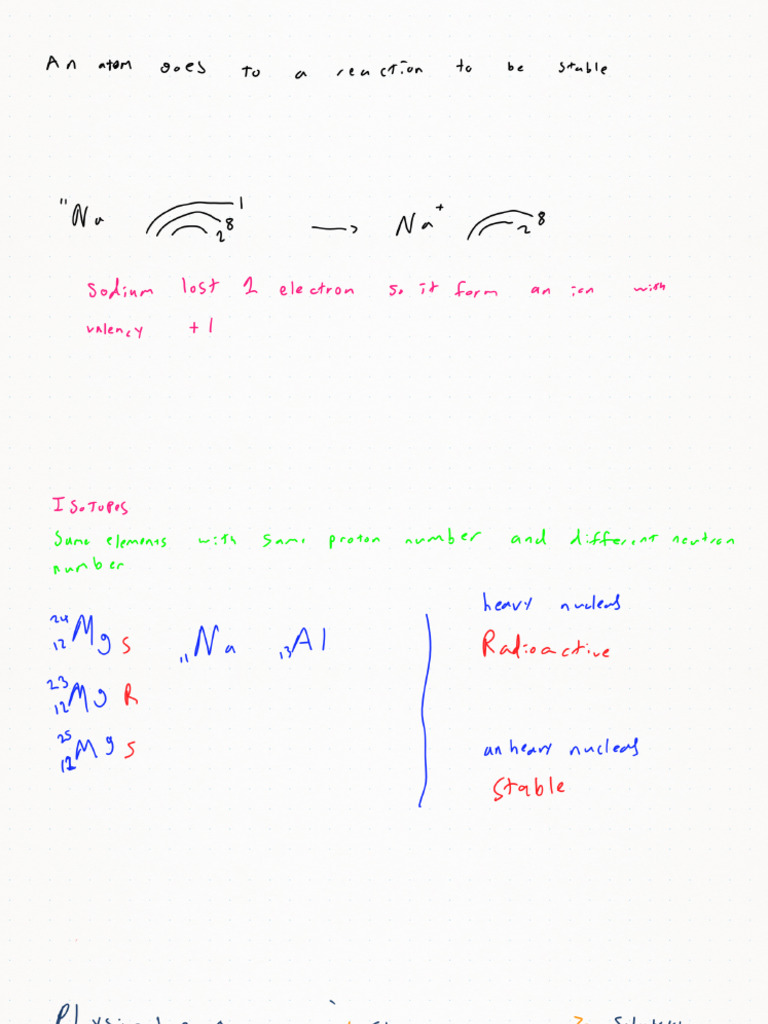 An atom goes to a reaction to be stable
11 Na 1 8 2 → Na+ 8 2
Sodium lost 1 electron so it form an ion with
valency +1
Isotopes
Same elements with same proton number and different neutron
number
heavy nucleus
24 12 Mg S 11 Na 13 Al
Radioactive
23 12 Mg R
25 12 Mg S
unheavy nucleus
Stable